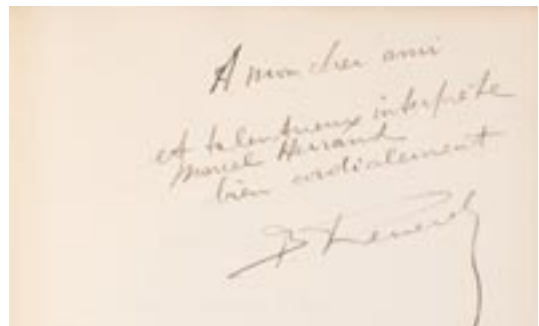 A mon cher ami
et talentueux interprète
Marcel Herrand
bien cordialement